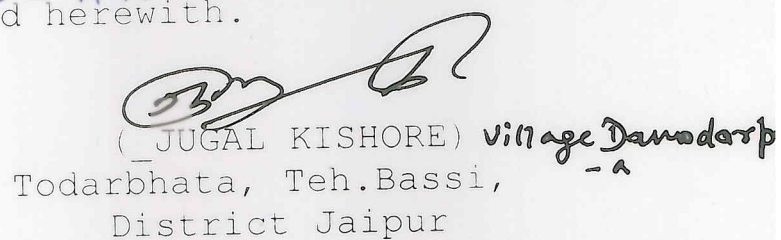 d herewith.
( JUGAL KISHORE) village Damodarp
-a
Todarbhata, Teh.Bassi,
District Jaipur